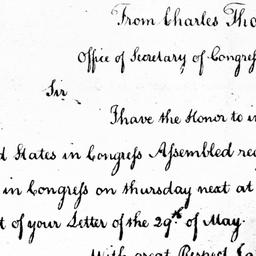 From Charles Tho
Office of Secretary of Congress
Sir
I have the Honor to in
d States in Congress Assembled req
in Congress on thursday next at
t of your Letter of the 29th of May.
With great Respect